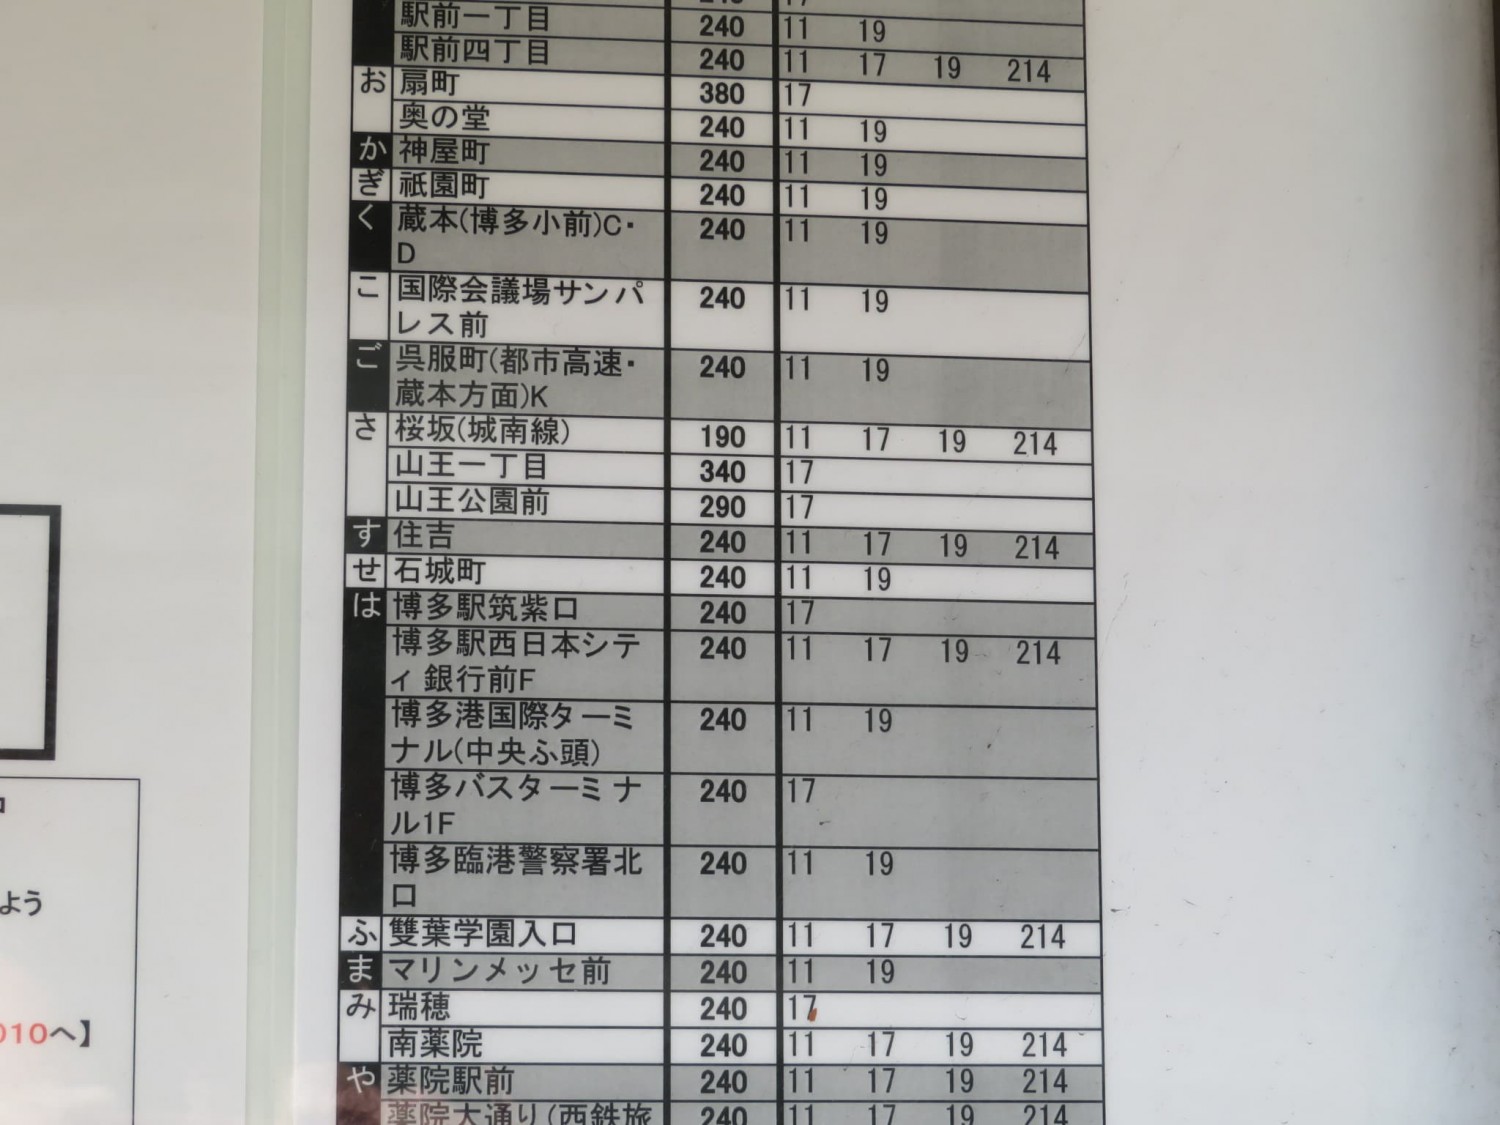 駅前一丁目 240 11 19
駅前四丁目 240 11 17 19 214
お 扇町 380 17
奥の堂 240 11 19
か 神屋町 240 11 19
ぎ 祇園町 240 11 19
く 蔵本(博多小前)C・ 240 11 19
D
こ 国際会議場サンパ 240 11 19
レス前
ご 呉服町(都市高速・ 240 11 19
蔵本方面)K
さ 桜坂(城南線) 190 11 17 19 214
山王一丁目 340 17
山王公園前 290 17
す 住吉 240 11 17 19 214
せ 石城町 240 11 19
は 博多駅筑紫口 240 17
博多駅西日本シテ 240 11 17 19 214
ィ銀行前F
博多港国際ターミ 240 11 19
ナル(中央ふ頭)
博多バスターミナ 240 17
ル1F
博多臨港警察署北 240 11 19
口
ふ 雙葉学園入口 240 11 17 19 214
ま マリンメッセ前 240 11 19
み 瑞穂 240 17
南薬院 240 11 17 19 214
や 薬院駅前 240 11 17 19 214
薬院大通り(西鉄旅 240 11 17 19 214
よう
010へ】